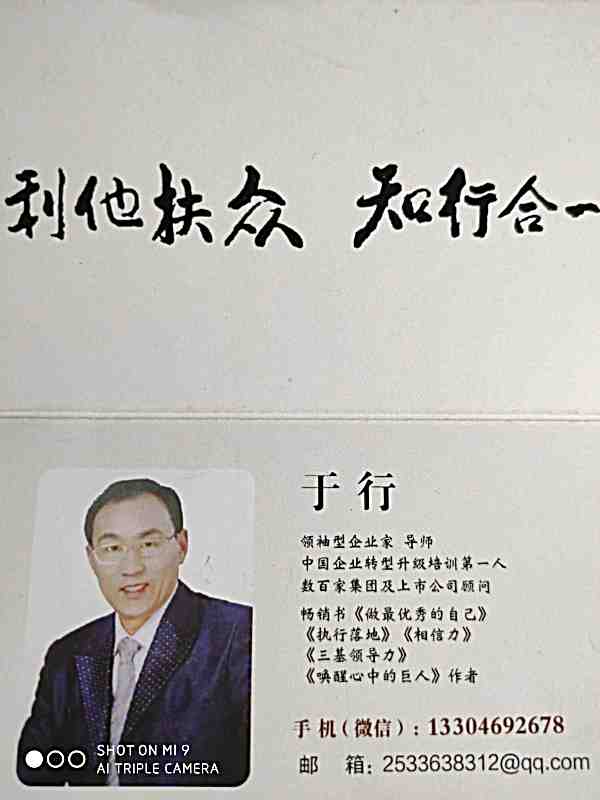 利他扶众 知行合一
于行
领袖型企业家 导师
中国企业转型升级培训第一人
数百家集团及上市公司顾问
畅销书《做最优秀的自己》
《执行落地》《相信力》
《三基领导力》
《唤醒心中的巨人》作者
手机(微信):13304692678
邮 箱:2533638312@qq.com
SHOT ON MI 9
AI TRIPLE CAMERA